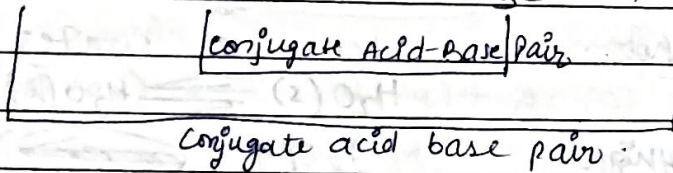 Conjugate Acid-Base Pair.
Conjugate acid base pair.